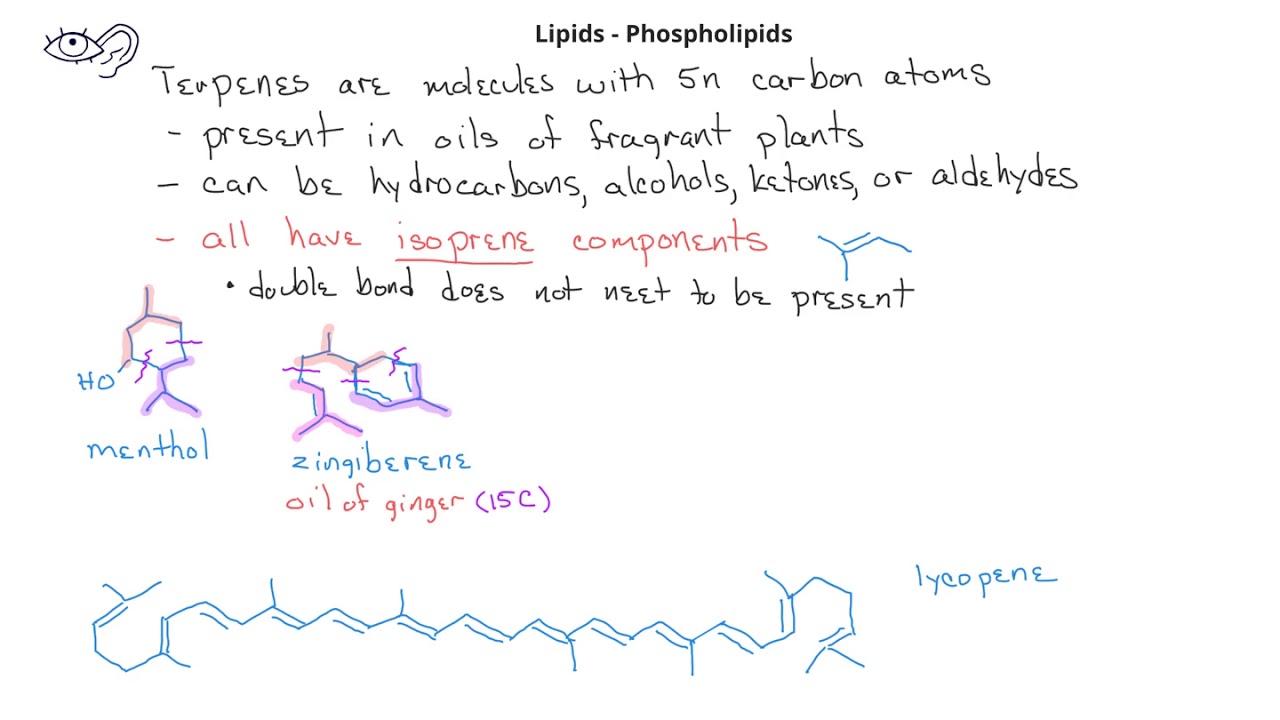 Lipids - Phospholipids
Terpenes are molecules with 5n carbon atoms
- present in oils of fragrant plants
- can be hydrocarbons, alcohols, ketones, or aldehydes
- all have isoprene components
• double bond does not neet to be present
HO
menthol
zingiberene
oil of ginger (15C)
lycopene